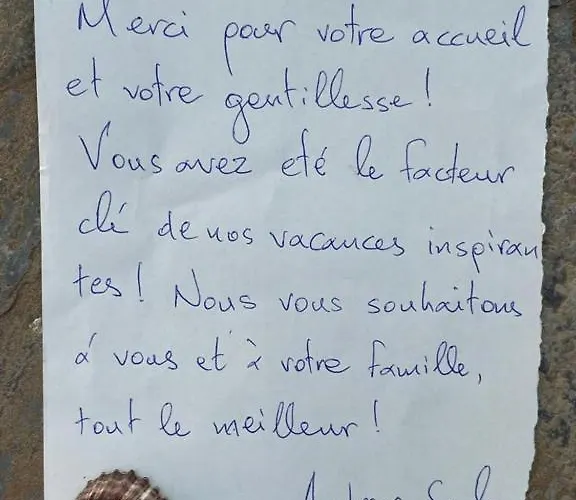 Merci pour votre accueil
et votre gentillesse!
Vous avez eté le facteur
clé de nos vacances inspiran
tes! Nous vous souhaitons
á vous et à votre famille,
tout le meilleur!